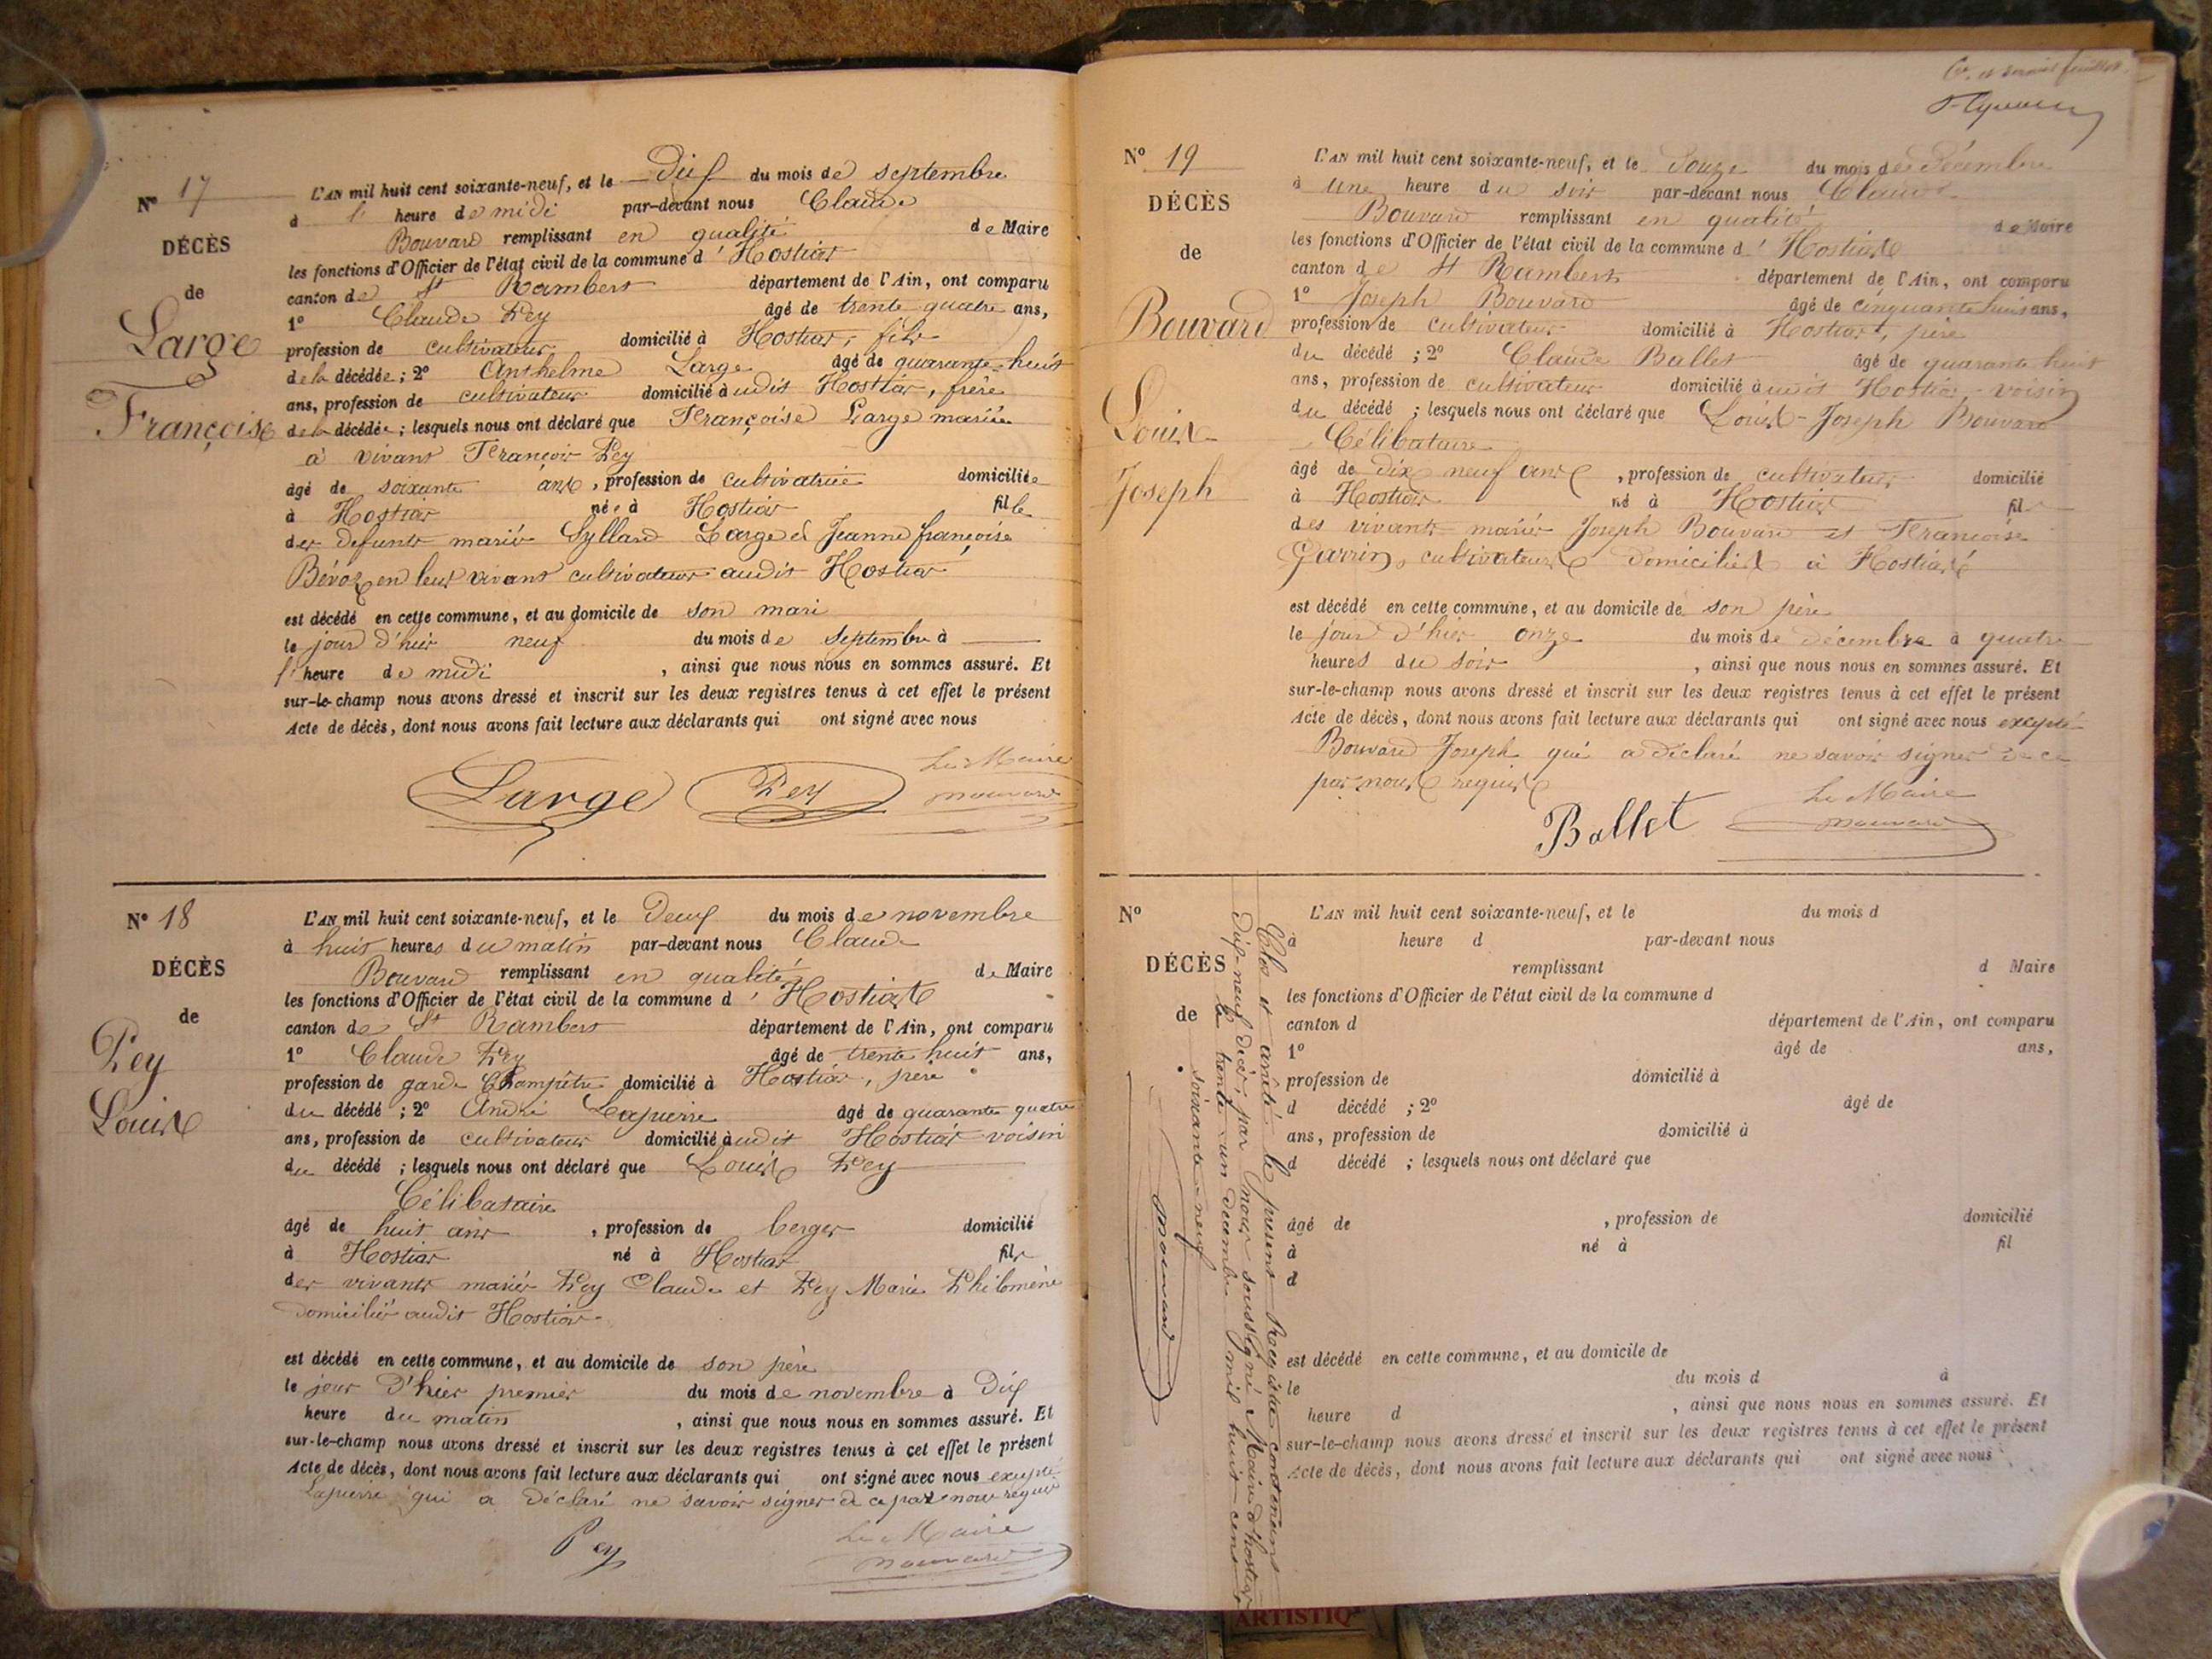 N° 17
DÉCÈS
de
Large
Françoise
L'AN mil huit cent soixante-neuf, et le Dix du mois de septembre
à l' heure de midi par-devant nous Claude
Bouvard remplissant en qualité de Maire
les fonctions d'Officier de l'état civil de la commune d' Hostias
canton de St Rambert département de l'Ain, ont comparu
1° Claude Pey âgé de trente quatre ans,
profession de cultivateur domicilié à Hostias, fils
de la décédée ; 2° Anthelme Large âgé de quarante-huit
ans, profession de cultivateur domicilié audit Hostias, frère
de la décédée ; lesquels nous ont déclaré que Françoise Large mariée
à vivant François Pey
âgé de soixante ans, profession de cultivatrice domiciliée
à Hostias née à Hostias fille
des defunts mariés Syllard Large et Jeanne françoise
Bévoz en leur vivant cultivateurs audit Hostias
est décédé en cette commune, et au domicile de son mari
le jour d'hier neuf du mois de septembre à
l' heure de midi , ainsi que nous nous en sommes assuré. Et
sur-le-champ nous avons dressé et inscrit sur les deux registres tenus à cet effet le présent
Acte de décès, dont nous avons fait lecture aux déclarants qui ont signé avec nous
Le Maire
Large Pey Bouvard
N° 18
DÉCÈS
de
Pey
Louis
L'AN mil huit cent soixante-neuf, et le Deux du mois de novembre
à huit heures du matin par-devant nous Claude
Bouvard remplissant en qualité de Maire
les fonctions d'Officier de l'état civil de la commune d' Hostias
canton de St Rambert département de l'Ain, ont comparu
1° Claude Pey âgé de trente huit ans,
profession de garde Champêtre domicilié à Hostias, père
du décédé ; 2° André Lapierre âgé de quarante quatre
ans, profession de cultivateur domicilié audit Hostias voisin
du décédé ; lesquels nous ont déclaré que Louis Pey
Célibataire
âgé de huit ans , profession de berger domicilié
à Hostias né à Hostias fils
des vivants mariés Pey Claude et Pey Marie Philomène
domiciliés audit Hostias
est décédé en cette commune, et au domicile de son père
le jour d'hier premier du mois de novembre à Dix
heure du matin , ainsi que nous nous en sommes assuré. Et
sur-le-champ nous avons dressé et inscrit sur les deux registres tenus à cet effet le présent
Acte de décès, dont nous avons fait lecture aux déclarants qui ont signé avec nous excepté
Lapierre qui a déclaré ne savoir signer de ce par nous requis
Le Maire
Pey Bouvard
6e et dernier feuillet
N° 19
DÉCÈS
de
Bouvard
Louis
Joseph
L'AN mil huit cent soixante-neuf, et le Douze du mois de Décembre
à une heure du soir par-devant nous Claude
Bouvard remplissant en qualité de Maire
les fonctions d'Officier de l'état civil de la commune d' Hostias
canton de St Rambert département de l'Ain, ont comparu
1° Joseph Bouvard âgé de cinquante huit ans,
profession de cultivateur domicilié à Hostias, père
du décédé ; 2° Claude Ballet âgé de quarante huit
ans, profession de cultivateur domicilié audit Hostias, voisin
du décédé ; lesquels nous ont déclaré que Louis-Joseph Bouvard
Célibataire
âgé de dix neuf ans , profession de cultivateur domicilié
à Hostias né à Hostias fil
des vivants mariés Joseph Bouvard et Françoise
Garrin, cultivateurs domiciliés à Hostias
est décédé en cette commune, et au domicile de son père
le jour d'hier onze du mois de décembre à quatre
heures du soir , ainsi que nous nous en sommes assuré. Et
sur-le-champ nous avons dressé et inscrit sur les deux registres tenus à cet effet le présent
Acte de décès, dont nous avons fait lecture aux déclarants qui ont signé avec nous excepté
Bouvard Joseph qui a déclaré ne savoir signer de ce
par nous requis
Le Maire
Ballet Bouvard
N°
DÉCÈS
de
L'AN mil huit cent soixante-neuf, et le du mois d
à heure d par-devant nous
remplissant d Maire
les fonctions d'Officier de l'état civil de la commune d
canton d département de l'Ain, ont comparu
1° âgé de ans,
profession de domicilié à
d décédé ; 2° âgé de
ans, profession de domicilié à
d décédé ; lesquels nous ont déclaré que
âgé de , profession de domicilié
à né à fil
d
est décédé en cette commune, et au domicile de
le du mois d à
heure d , ainsi que nous nous en sommes assuré. Et
sur-le-champ nous avons dressé et inscrit sur les deux registres tenus à cet effet le présent
Acte de décès, dont nous avons fait lecture aux déclarants qui ont signé avec nous
Clos et arrêté le présent Registre contenant
Dix-neuf décès, par nous soussigné Maire d'hostias,
le trente-un décembre mil huit-cent
soixante-neuf
Bouvard
ARTISTIQ